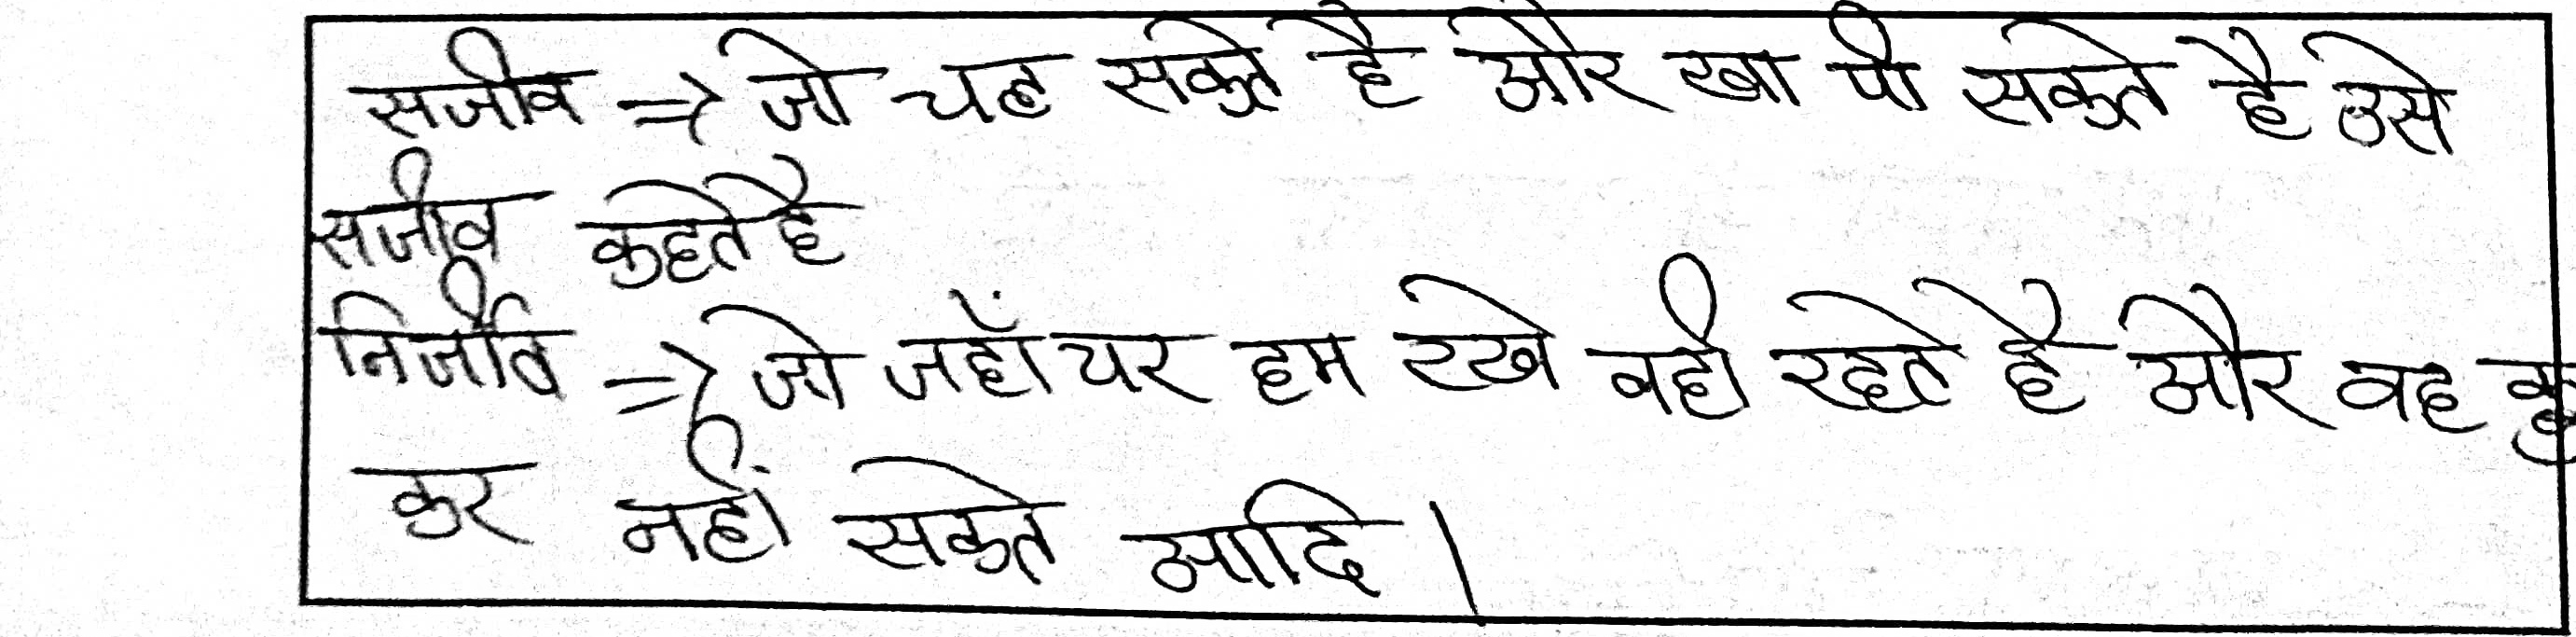 सजीव => जो चल सकते है और खा पी सकते है उसे
सजीव कहते है
निर्जीव => जो जहाँ पर हम रखे वही रहते है और वह
कर नहीं सकते आदि।